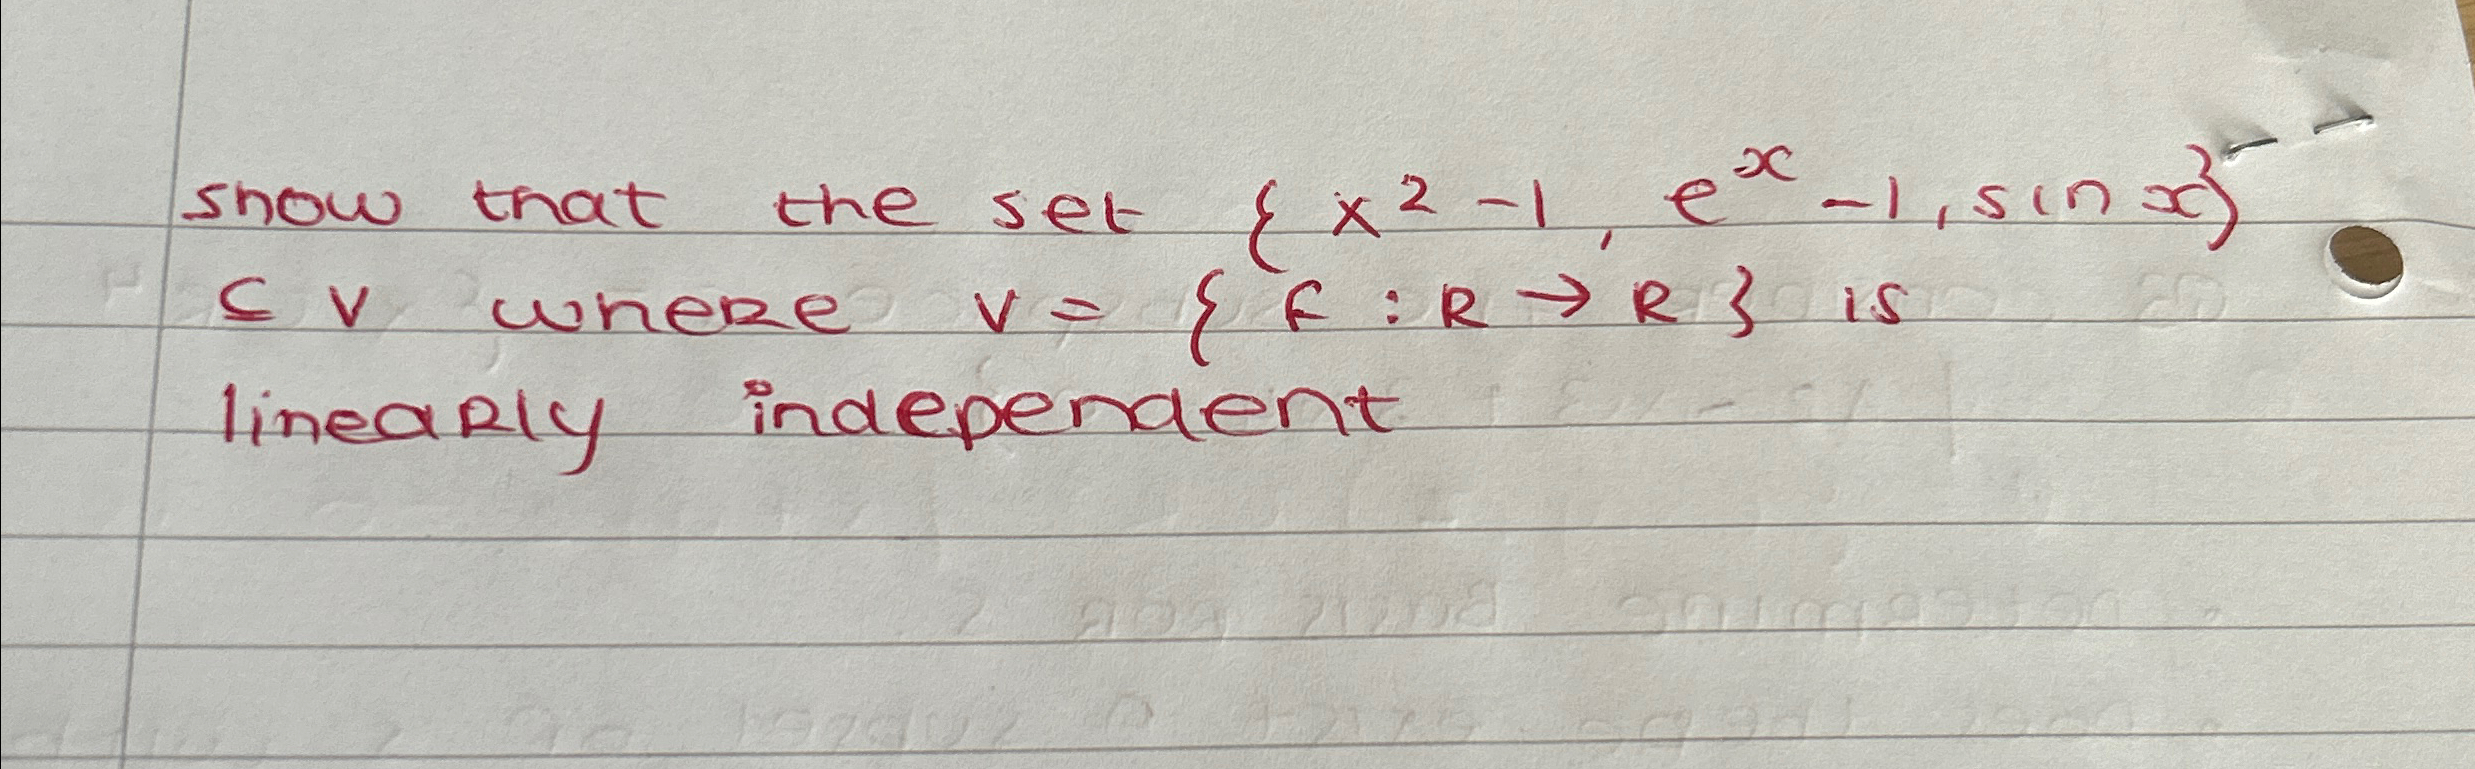 show that the set { x² - 1, eˣ - 1, sin x}
⊂ V where V = { f : R → R } is
linearly independent